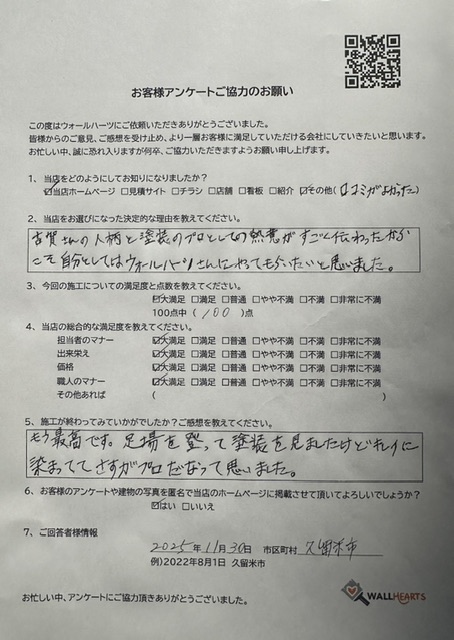 お客様アンケートご協力のお願い
この度はウォールハーツにご依頼いただきありがとうございました。
皆様からのご意見、ご感想を受け止め、より一層お客様に満足していただける会社にしていきたいと思います。
お忙しい中、誠に恐れ入りますが何卒、ご協力いただきますようお願い申し上げます。
1、当店をどのようにしてお知りになりましたか？
☑当店ホームページ □見積サイト □チラシ □店舗 □看板 □紹介 ☑その他（口コミがよかった）
2、当店をお選びになった決定的な理由を教えてください。
古賀さんの人柄と塗装のプロとしての熱意がすごく伝わったから
こそ自分としてはウォールハーツさんにやってもらいたいと思いました。
3、今回の施工についての満足度と点数を教えてください。
☑大満足 □満足 □普通 □やや不満 □不満 □非常に不満
100点中（100）点
4、当店の総合的な満足度を教えてください。
担当者のマナー ☑大満足 □満足 □普通 □やや不満 □不満 □非常に不満
出来栄え ☑大満足 □満足 □普通 □やや不満 □不満 □非常に不満
価格 ☑大満足 □満足 □普通 □やや不満 □不満 □非常に不満
職人のマナー ☑大満足 □満足 □普通 □やや不満 □不満 □非常に不満
その他あれば （ ）
5、施工が終わってみていかがでしたか？ご感想を教えてください。
もう最高です。足場を登って塗装を見ましたけどキレイに
染まっててさすがプロだなって思いました。
6、お客様のアンケートや建物の写真を匿名で当店のホームページに掲載させて頂いてよろしいでしょうか？
☑はい □いいえ
7、ご回答者様情報
2025年11月30日 市区町村 久留米市
例）2022年8月1日 久留米市
お忙しい中、アンケートにご協力頂きありがとうございました。
WALLHEARTS